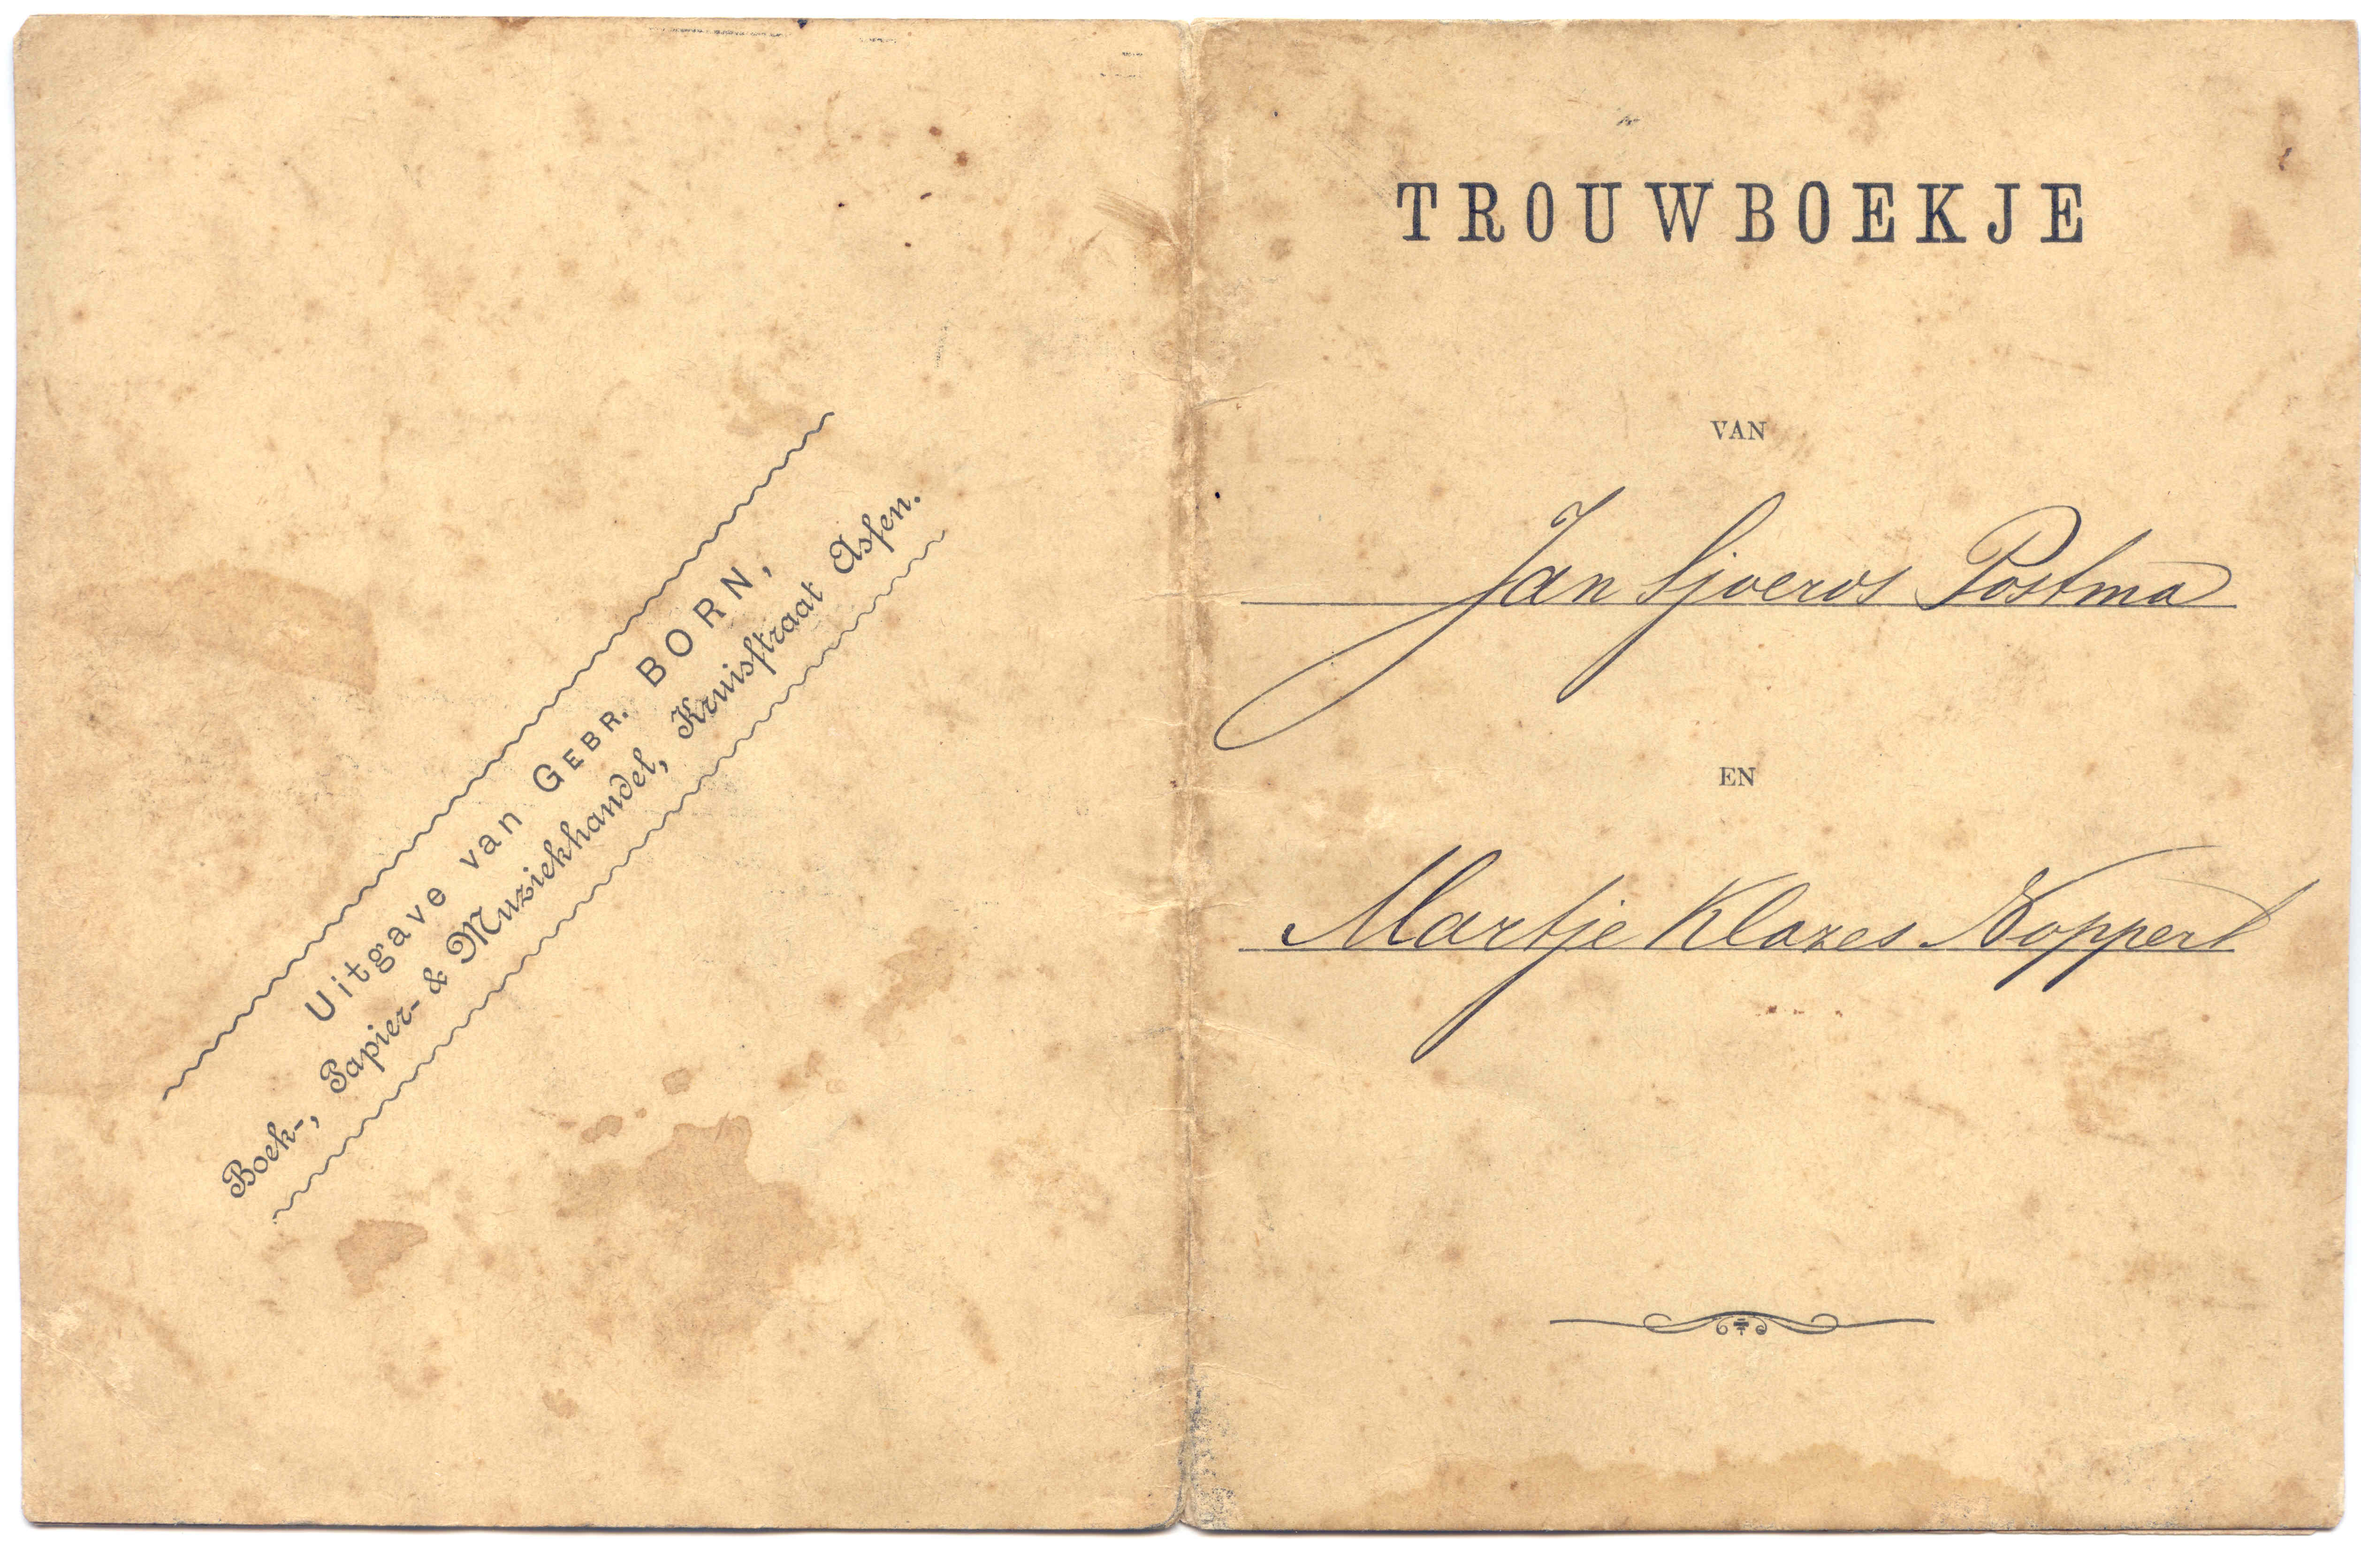 Uitgave van GEBR. BORN,
Boek-, Papier- & Muziekhandel, Kruisstraat Assen.
TROUWBOEKJE
VAN
Jan Sjoerds Postma
EN
Martje Klazes Koppert